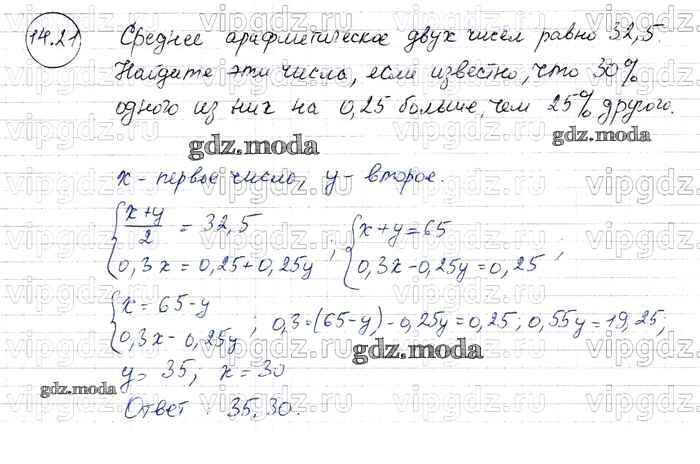 14.21 Среднее арифметическое двух чисел равно 32,5.
Найдите эти числа, если известно, что 30%
одного из них на 0,25 больше, чем 25% другого.
gdz.moda
x - первое число, y - второе.
{ (x+y)/2 = 32,5 ; { x+y=65 ;
0,3x = 0,25+0,25y 0,3x-0,25y=0,25
{ x = 65-y
0,3x-0,25y ; 0,3=(65-y)-0,25y=0,25; 0,55y=19,25;
gdz.moda
y= 35, x=30
gdz.moda
Ответ : 35,30.
vipgdz.ru